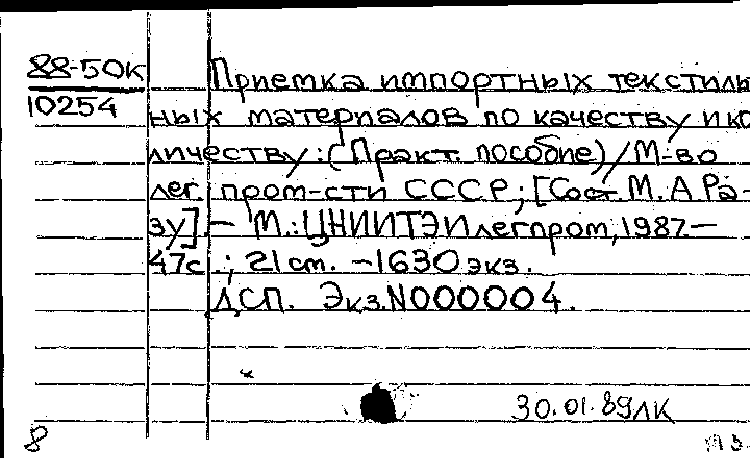 88-50К
10254
Приемка импортных текстиль
ных материалов по качеству и ко
личеству: (Практ. пособие) / М-во
лег. пром-сти СССР; [Сост. М. А Ра
зу] – М.: ЦНИИТЭИлегпром, 1987.–
47с.; 21 см. – 1630 экз.
ДСП. Экз. N000004.
30.01.89ЛК
8